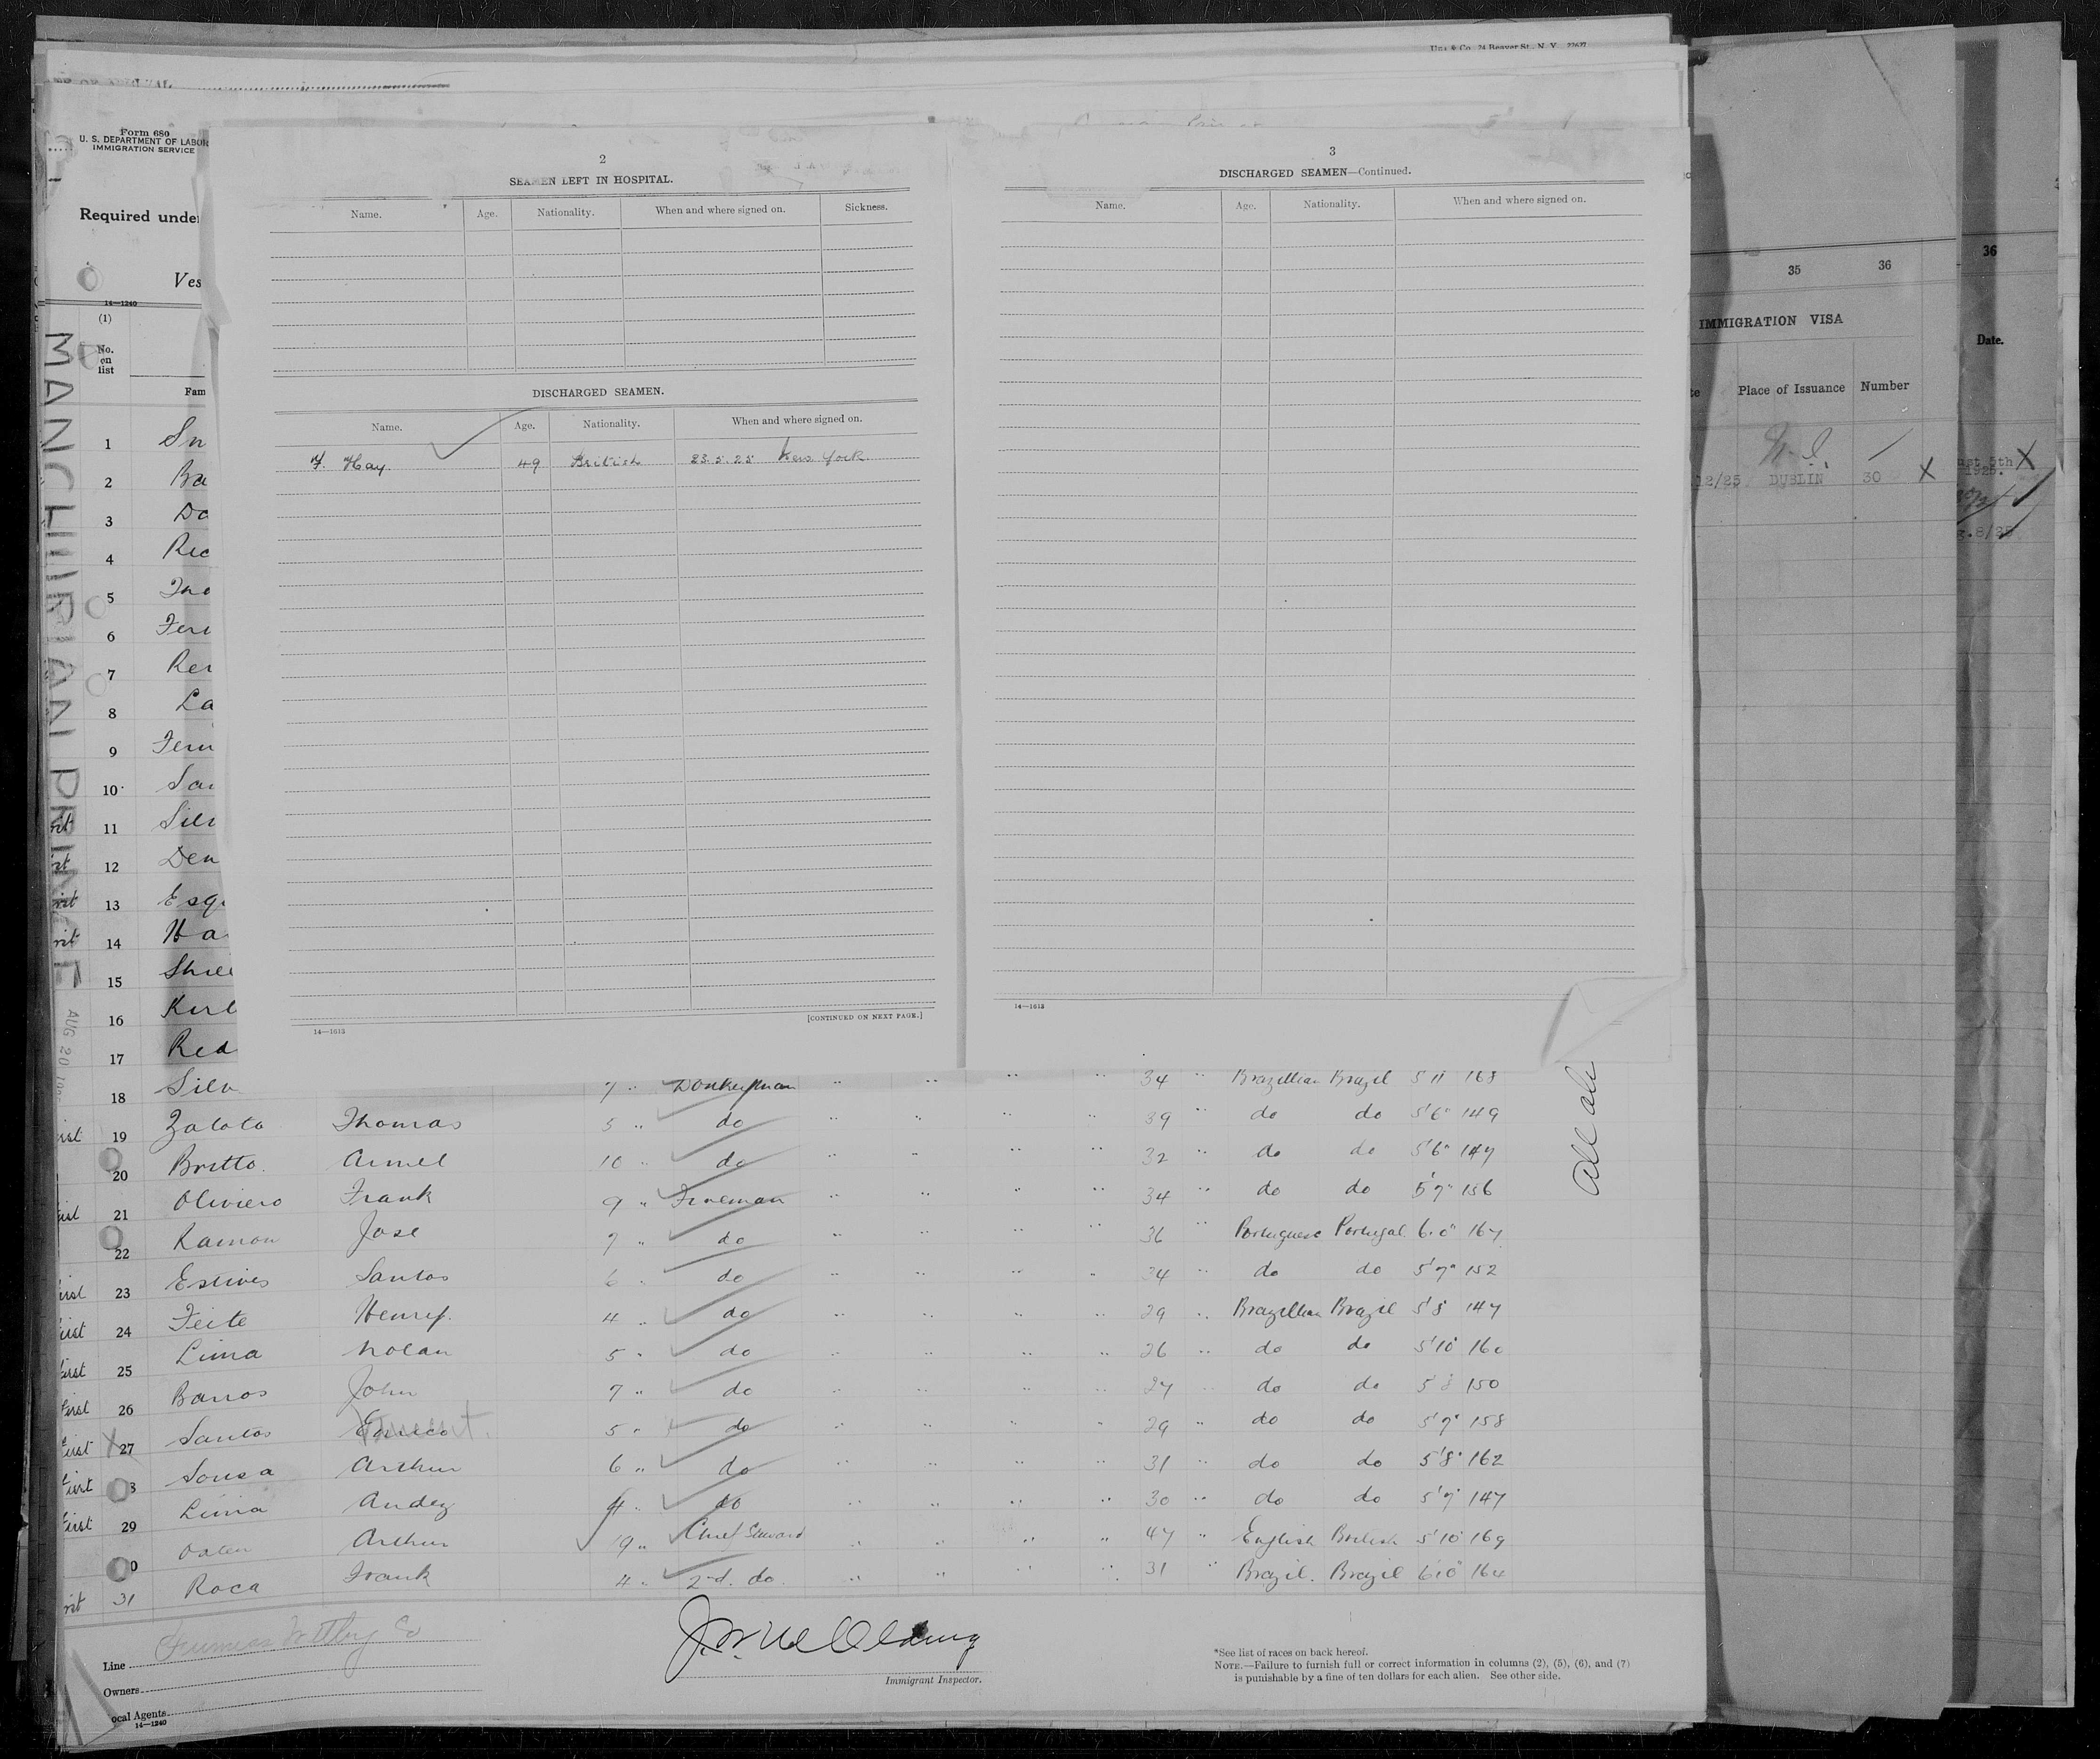 24 Beaver St., N. Y.
Form 680
U. S. DEPARTMENT OF LABOR
IMMIGRATION SERVICE
Required under
Ves
14—1240
(1)
No. on list
Fam
MANCHURIAN PRINCE
AUG 20
1 Sn
2 Ba
3 Do
4 Ric
5 Tho
6 Fern
7 Rei
8 La
9 Fern
10 Sa
11 Silv
12 Den
13 Esq
14 Ha
15 Shee
16 Kirl
17 Red
2
SEAMEN LEFT IN HOSPITAL.
Name. Age. Nationality. When and where signed on. Sickness.
DISCHARGED SEAMEN.
Name. Age. Nationality. When and where signed on.
F. Hay. 49 British 23.5.25 New York
14—1613
[CONTINUED ON NEXT PAGE.]
3
DISCHARGED SEAMEN—Continued.
Name. Age. Nationality. When and where signed on.
14—1613
35 36
IMMIGRATION VISA
Place of Issuance Number
12/25 DUBLIN 30 X
36
Date.
1925.
18 Silv 7 " Donkeyman " " " " 34 " Brazillian Brazil 5 11 168
19 Zaloto Thomas 5 " do " " " " 39 " do do 5'6" 149
20 Britto. 10 " do " " " " 32 " do do 5'6" 147
21 Oliviero Frank 9 " Fireman " " " " 34 " do do 5'7" 156
22 Ramon Jose 7 " do " " " " 36 " Portuguese Portugal 6.0" 167
23 Estives Santos 6 " do " " " " 34 " do do 5'7" 152
24 Feite Henry. 4 " do " " " " 29 " Brazillian Brazil 5'8 147
25 Lima Nolan 5 " do " " " " 26 " do do 5'10 160
26 Barros John 7 " do " " " " 27 " do do 5'8 150
27 Santos 5 " do " " " " 29 " do do 5'7" 158
Sousa Arthur 6 " do " " " " 31 " do do 5'8" 162
29 Lima Andez 4 " do " " " " 30 " do do 5'7" 147
Arthur 19 " Chief Steward " " " " 47 " English British 5'10 169
31 Roca Frank 4 " 2nd. do. " " " " 31 " Brazil. Brazil 6'0" 164
Line Furness Withy Co
Owners
ocal Agents
14—1240
Immigrant Inspector.
*See list of races on back hereof.
NOTE.—Failure to furnish full or correct information in columns (2), (5), (6), and (7)
is punishable by a fine of ten dollars for each alien. See other side.